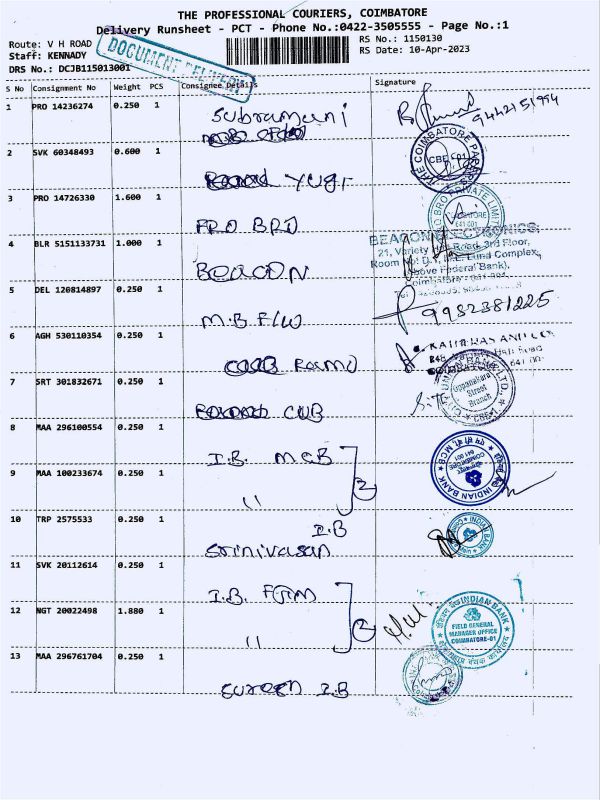 THE PROFESSIONAL COURIERS, COIMBATORE
Delivery Runsheet - PCT - Phone No.:0422-3505555 - Page No.:1
Route: V H ROAD
RS No.: 1150130
Staff: KENNADY
RS Date: 10-Apr-2023
DRS No.: DCJB115013001
DOCUMENT DELIVERY
S No Consignment No Weight PCS Consignee Details Signature
1 PRO 14236274 0.250 1
Subramani
9442151994
THE COIMBATORE
CBE-01
2 SVK 60348493 0.600 1
Yugi
3 PRO 14726330 1.600 1
PRO BRO
BRO PRIVATE LIMITED
4 BLR 5151133731 1.000 1
BEACON
21, Variety Hall Road, 3rd Floor,
Complex,
(Above Federal Bank),
Coimbatore
5 DEL 120814897 0.250 1
M.B F/W
9952381225
6 AGH 530110354 0.250 1
7 SRT 301832671 0.250 1
CUB
CITY UNION BANK LTD.,
Oppanakara
Street
Branch
CBE-1
8 MAA 296100554 0.250 1
I.B. MCB
2
9 MAA 100233674 0.250 1
"
INDIAN BANK
COIMBATORE
641 001
10 TRP 2575533 0.250 1
I.B
Srinivasan
INDIAN BANK
11 SVK 20112614 0.250 1
I.B. FGM
2
12 NGT 20022498 1.880 1
"
INDIAN BANK
FIELD GENERAL
MANAGER OFFICE
COIMBATORE-01
13 MAA 296761704 0.250 1
I.B